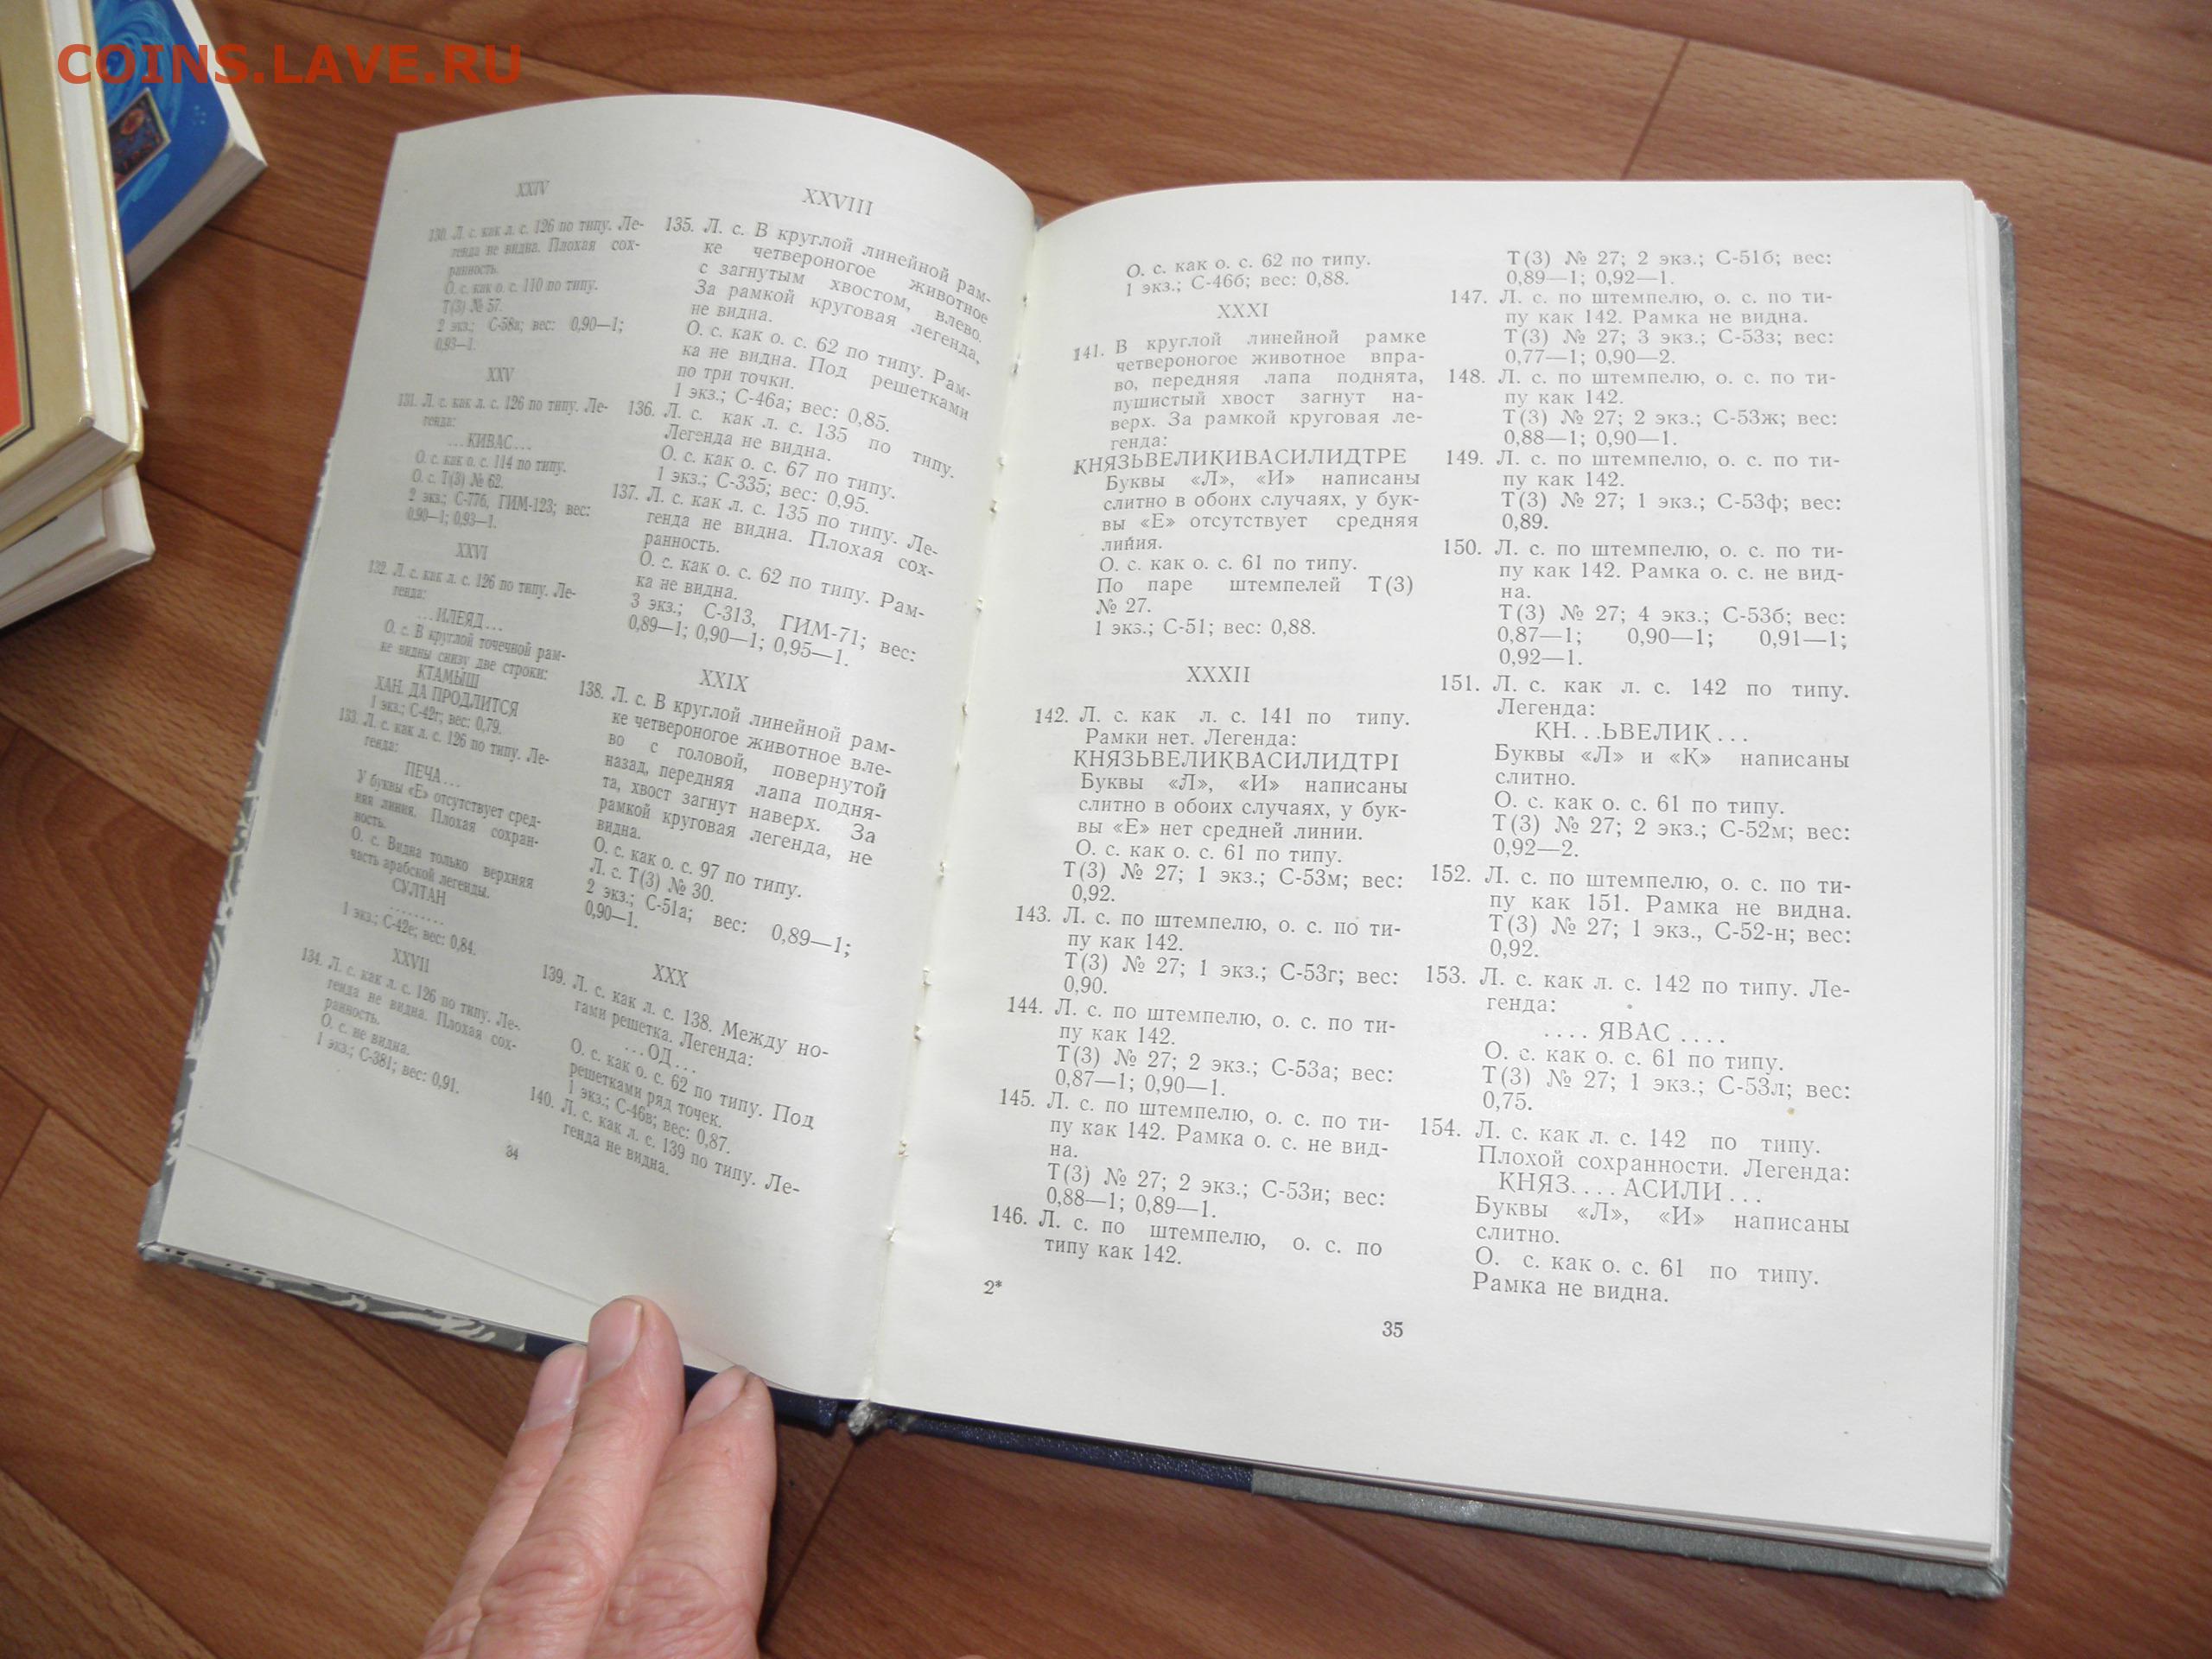 COINS.LAVE.RU
XXIV
130. Л. с. как л. с. 126 по типу. Ле-
генда не видна. Плохая сох-
ранность.
О. с. как о. с. 110 по типу.
Т(3) № 57.
2 экз.; С-58а; вес: 0,90—1;
0,93—1.
XXV
131. Л. с. как л. с. 126 по типу. Ле-
генда:
...КИВАС...
О. с. как о. с. 114 по типу.
О. с. Т(3) № 62.
2 экз.; С-77б, ГИМ-123; вес:
0,90—1; 0,93—1.
XXVI
132. Л. с. как л. с. 126 по типу. Ле-
генда:
...ИЛЕЯД...
О. с. В круглой точечной рам-
ке видны снизу две строки:
КТАМЫШ
ХАН. ДА ПРОДЛИТСЯ
1 экз.; С-42г; вес: 0,79.
133. Л. с. как л. с. 126 по типу. Ле-
генда:
ПЕЧА...
У буквы «Е» отсутствует сред-
няя линия. Плохая сохран-
ность.
О. с. Видна только верхняя
часть арабской легенды.
СУЛТАН
.........
1 экз.; С-42е; вес: 0,84.
XXVII
134. Л. с. как л. с. 126 по типу. Ле-
генда не видна. Плохая сох-
ранность.
О. с. не видна.
1 экз.; С-381; вес: 0,91.
XXVIII
135. Л. с. В круглой линейной рам-
ке четвероногое животное
с загнутым хвостом, влево.
За рамкой круговая легенда,
не видна.
О. с. как о. с. 62 по типу. Рам-
ка не видна. Под решетками
по три точки.
1 экз.; С-46а; вес: 0,85.
136. Л. с. как л. с. 135 по типу.
Легенда не видна.
О. с. как о. с. 67 по типу.
1 экз.; С-335; вес: 0,95.
137. Л. с. как л. с. 135 по типу. Ле-
генда не видна. Плохая сох-
ранность.
О. с. как о. с. 62 по типу. Рам-
ка не видна.
3 экз.; С-313, ГИМ-71; вес:
0,89—1; 0,90—1; 0,95—1.
XXIX
138. Л. с. В круглой линейной рам-
ке четвероногое животное вле-
во с головой, повернутой
назад, передняя лапа подня-
та, хвост загнут наверх. За
рамкой круговая легенда, не
видна.
О. с. как о. с. 97 по типу.
Л. с. Т(3) № 30.
2 экз.; С-51а; вес: 0,89—1;
0,90—1.
XXX
139. Л. с. как л. с. 138. Между но-
гами решетка. Легенда:
...ОД...
О. с. как о. с. 62 по типу. Под
решетками ряд точек.
1 экз.; С-46в; вес: 0,87.
140. Л. с. как л. с. 139 по типу. Ле-
генда не видна.
34
О. с. как о. с. 62 по типу.
1 экз.; С-46б; вес: 0,88.
XXXI
141. В круглой линейной рамке
четвероногое животное впра-
во, передняя лапа поднята,
пушистый хвост загнут на-
верх. За рамкой круговая ле-
генда:
ҚНЯЗЬВЕЛИҚИВАСИЛИДТРЕ
Буквы «Л», «И» написаны
слитно в обоих случаях, у бук-
вы «Е» отсутствует средняя
линия.
О. с. как о. с. 61 по типу.
По паре штемпелей Т(3)
№ 27.
1 экз.; С-51; вес: 0,88.
XXXII
142. Л. с. как л. с. 141 по типу.
Рамки нет. Легенда:
ҚНЯЗЬВЕЛИҚВАСИЛИДТРІ
Буквы «Л», «И» написаны
слитно в обоих случаях, у бук-
вы «Е» нет средней линии.
О. с. как о. с. 61 по типу.
Т(3) № 27; 1 экз.; С-53м; вес:
0,92.
143. Л. с. по штемпелю, о. с. по ти-
пу как 142.
Т(3) № 27; 1 экз.; С-53г; вес:
0,90.
144. Л. с. по штемпелю, о. с. по ти-
пу как 142.
Т(3) № 27; 2 экз.; С-53а; вес:
0,87—1; 0,90—1.
145. Л. с. по штемпелю, о. с. по ти-
пу как 142. Рамка о. с. не вид-
на.
Т(3) № 27; 2 экз.; С-53и; вес:
0,88—1; 0,89—1.
146. Л. с. по штемпелю, о. с. по
типу как 142.
2*
Т(3) № 27; 2 экз.; С-51б; вес:
0,89—1; 0,92—1.
147. Л. с. по штемпелю, о. с. по ти-
пу как 142. Рамка не видна.
Т(3) № 27; 3 экз.; С-53з; вес:
0,77—1; 0,90—2.
148. Л. с. по штемпелю, о. с. по ти-
пу как 142.
Т(3) № 27; 2 экз.; С-53ж; вес:
0,88—1; 0,90—1.
149. Л. с. по штемпелю, о. с. по ти-
пу как 142.
Т(3) № 27; 1 экз.; С-53ф; вес:
0,89.
150. Л. с. по штемпелю, о. с. по ти-
пу как 142. Рамка о. с. не вид-
на.
Т(3) № 27; 4 экз.; С-53б; вес:
0,87—1; 0,90—1; 0,91—1;
0,92—1.
151. Л. с. как л. с. 142 по типу.
Легенда:
ҚН...ЬВЕЛИҚ...
Буквы «Л» и «Қ» написаны
слитно.
О. с. как о. с. 61 по типу.
Т(3) № 27; 2 экз.; С-52м; вес:
0,92—2.
152. Л. с. по штемпелю, о. с. по ти-
пу как 151. Рамка не видна.
Т(3) № 27; 1 экз., С-52-н; вес:
0,92.
153. Л. с. как л. с. 142 по типу. Ле-
генда:
....ЯВАС....
О. с. как о. с. 61 по типу.
Т(3) № 27; 1 экз.; С-53л; вес:
0,75.
154. Л. с. как л. с. 142 по типу.
Плохой сохранности. Легенда:
ҚНЯЗ....АСИЛИ...
Буквы «Л», «И» написаны
слитно.
О. с. как о. с. 61 по типу.
Рамка не видна.
35